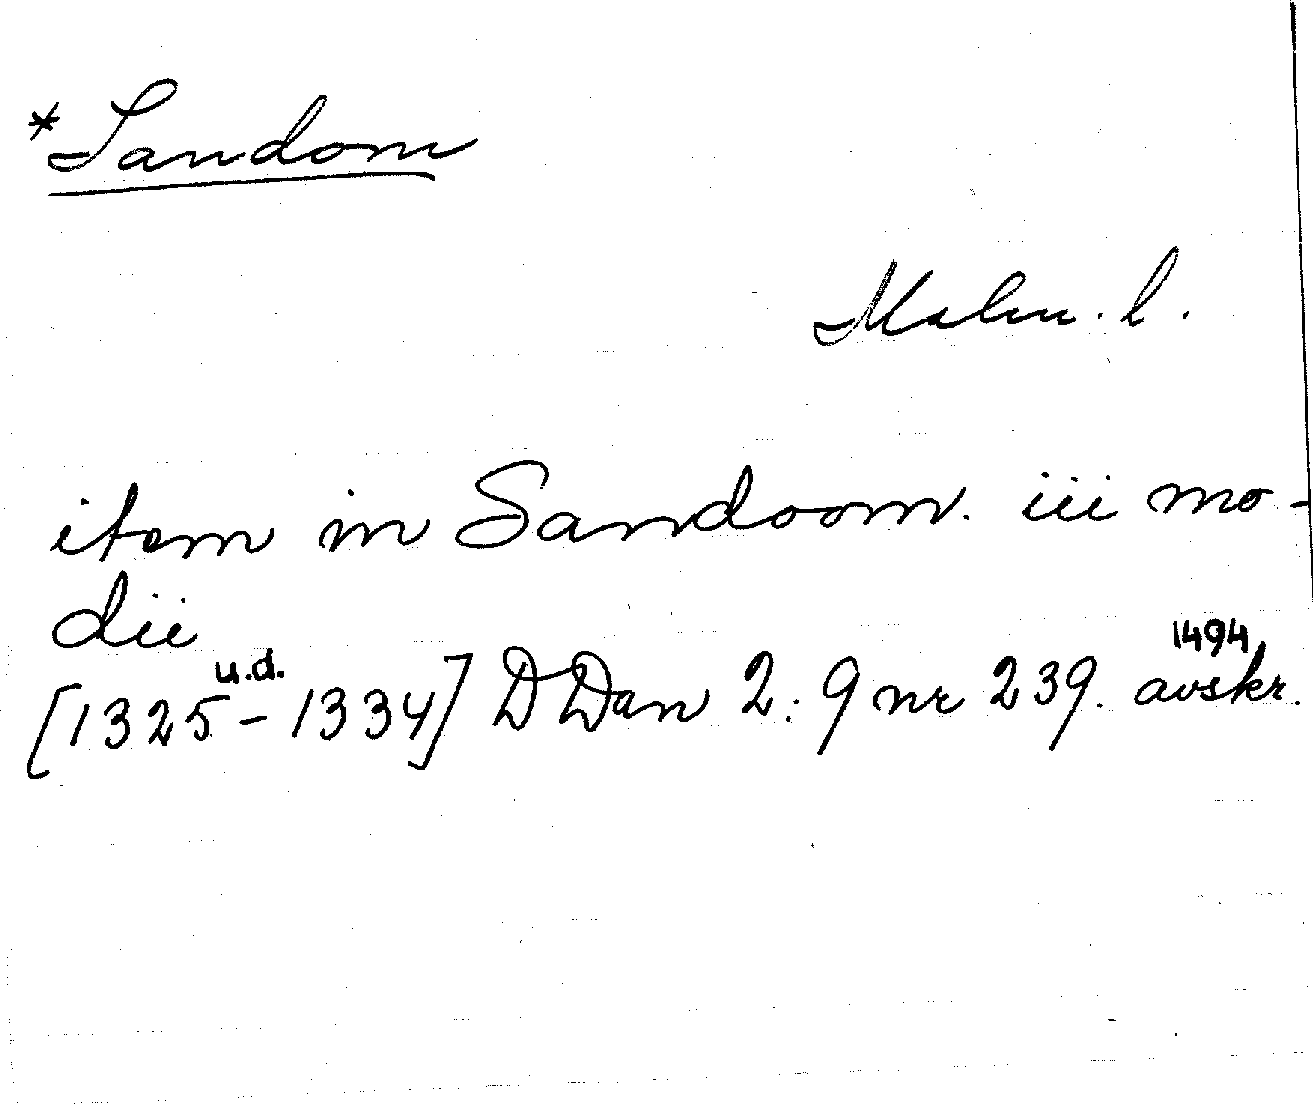 *Sandom
Malm. l.
item in Sandoom. iii mo-
dii
[1325 u.d. - 1334] DDan 2:9 nr 239. 1494 avskr.